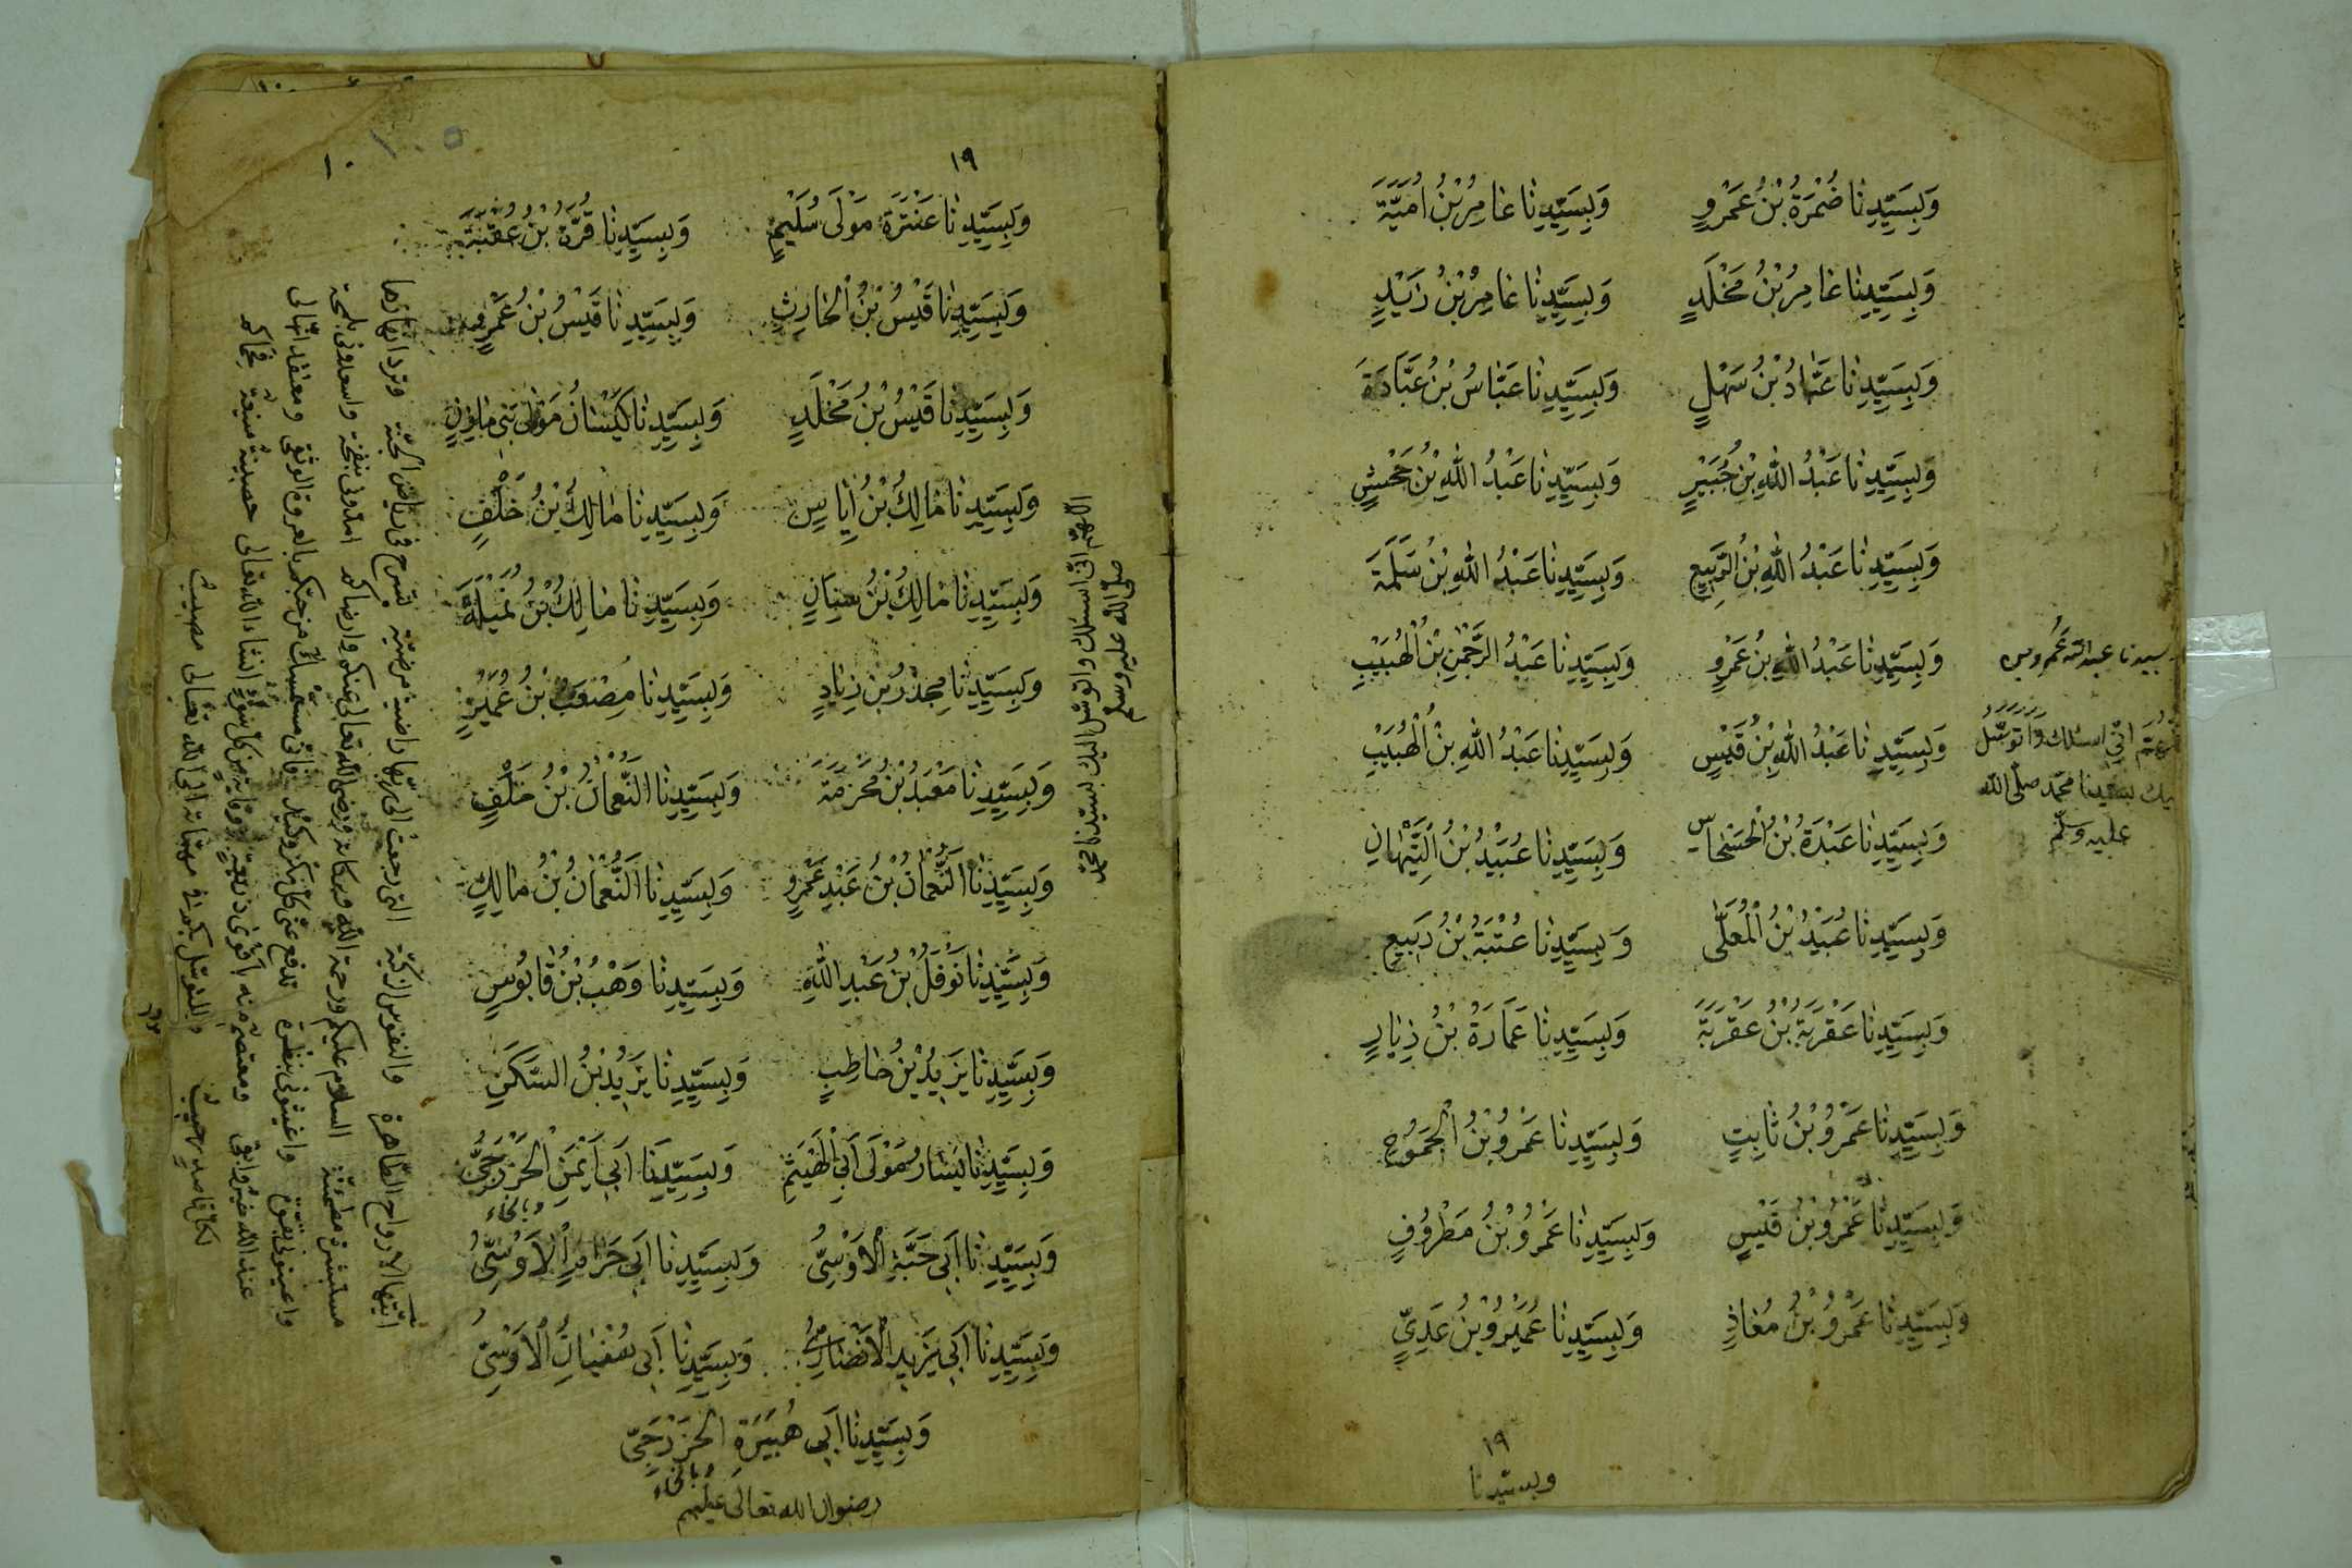 وَبِسَيِّدِنَا ضُمْرَةُ بْنُ عَمْرٍو وَبِسَيِّدِنَا عَامِرُ بْنُ اُمَيَّةَ
وَبِسَيِّدِنَا عَامِرُ بْنُ مَخْلَدٍ وَبِسَيِّدِنَا عَامِرُ بْنُ زَيْدٍ
وَبِسَيِّدِنَا عَبَّادُ بْنُ سَهْلٍ وَبِسَيِّدِنَا عَبَّاسُ بْنُ عَبَّادَةَ
وَبِسَيِّدِنَا عَبْدُ اللهِ بْنُ جُبَيْرٍ وَبِسَيِّدِنَا عَبْدُ اللهِ بْنُ جَحْشٍ
وَبِسَيِّدِنَا عَبْدُ اللهِ بْنُ الرَّبِيعِ وَبِسَيِّدِنَا عَبْدُ اللهِ بْنُ سَلَمَةَ
وَبِسَيِّدِنَا عَبْدُ اللهِ بْنُ عَمْرٍو وَبِسَيِّدِنَا عَبْدُ الرَّحْمٰنِ بْنُ الْهُبَيْبِ
وَبِسَيِّدِنَا عَبْدُ اللهِ بْنُ قَيْسٍ وَبِسَيِّدِنَا عَبْدُ اللهِ بْنُ الْهُبَيْبِ
وَبِسَيِّدِنَا عَبْدَةُ بْنُ الْحَسْحَاسِ وَبِسَيِّدِنَا عُبَيْدُ بْنُ التَّيْهَانِ
وَبِسَيِّدِنَا عُبَيْدُ بْنُ الْمُعَلّٰى وَبِسَيِّدِنَا عُتْبَةُ بْنُ رَبِيعٍ
وَبِسَيِّدِنَا عَقْرَبَةُ بْنُ عَقْرَبَةَ وَبِسَيِّدِنَا عَمَارَةُ بْنُ زِيَادٍ
وَبِسَيِّدِنَا عَمْرُو بْنُ ثَابِتٍ وَبِسَيِّدِنَا عَمْرُو بْنُ الْجَمُوحِ
وَبِسَيِّدِنَا عَمْرُو بْنُ قَيْسٍ وَبِسَيِّدِنَا عَمْرُو بْنُ مَطْرُوفٍ
وَبِسَيِّدِنَا عَمْرُو بْنُ مُعَاذٍ وَبِسَيِّدِنَا عُمَيْرُ بْنُ عَدِيٍّ
١٩
وبسيدنا
سيدنا عبد الله عمرو بن
انى اسئلك واتوسل
بسيدنا محمد صلى الله
عليه وسلم
١٩
١٠
وَبِسَيِّدِنَا عَنْتَرَةَ مَوْلَى سُلَيْمٍ وَبِسَيِّدِنَا قُرَّةُ بْنُ عُقْبَةَ
وَبِسَيِّدِنَا قَيْسُ بْنُ الْحَارِثِ وَبِسَيِّدِنَا قَيْسُ بْنُ عَمْرٍو
وَبِسَيِّدِنَا قَيْسُ بْنُ مَخْلَدٍ وَبِسَيِّدِنَا كَيْسَانُ مَوْلٰى بَنِى مَازِنٍ
وَبِسَيِّدِنَا مَالِكُ بْنُ اَيَاسٍ وَبِسَيِّدِنَا مَالِكُ بْنُ خَلْفٍ
وَبِسَيِّدِنَا مَالِكُ بْنُ سِنَانٍ وَبِسَيِّدِنَا مَالِكُ بْنُ نُمَيْلَةَ
وَبِسَيِّدِنَا مِجْذَرُ بْنُ زِيَادٍ وَبِسَيِّدِنَا مُصْعَبُ بْنُ عُمَيْرٍ
وَبِسَيِّدِنَا مَعْبَدُ بْنُ مَخْرَمَةَ وَبِسَيِّدِنَا النُّعْمَانُ بْنُ خَلْفٍ
وَبِسَيِّدِنَا النُّعْمَانُ بْنُ عَبْدِ عَمْرٍو وَبِسَيِّدِنَا النُّعْمَانُ بْنُ مَالِكٍ
وَبِسَيِّدِنَا نَوْفَلُ بْنُ عَبْدِ اللهِ وَبِسَيِّدِنَا وَهْبُ بْنُ قَابُوسٍ
وَبِسَيِّدِنَا يَزِيدُ بْنُ حَاطِبٍ وَبِسَيِّدِنَا يَزِيدُ بْنُ السَّكَنِ
وَبِسَيِّدِنَا يَسَار مَوْلَى اَبِى الْهَيْثَمِ وَبِسَيِّدِنَا اَبِى اَيْمَنَ الْخَزْرَجِيِّ
وَبِسَيِّدِنَا اَبِى حَبَّةِ الْاَوْسِيُّ وَبِسَيِّدِنَا اَبِى حَرَامٍ الْاَوْسِيُّ
وَبِسَيِّدِنَا اَبِى يَزِيدِ الْاَنْصَارِيُّ وَبِسَيِّدِنَا اَبِى سُفْيَانَ الْاَوْسِيِّ
وَبِسَيِّدِنَا اَبِى هُبَيْرَةِ الْخَزْرَجِيِّ
رضوان الله تعالى عليهم
اللهم انى اسئلك واتوسل اليك بسيدنا محمد
صلى الله عليه وسلم
ايتها الارواح الطاهرة والنفوس الزكية التى رجعت الى ربها راضية مرضية تسرح فى رياض الجنة وترد انهارها
مستبشرة مطمئنة السلام عليكم ورحمة الله وبركاته ورضى الله تعالى عنكم وارضاكم امدونى بنفحة واسعدونى بلمحة
واعينونى بقوة واغيثونى بنظرة تدفع عنى كل مكر وكيد فانى مستمسك من حبكم بالعروة الوثقى
عند الله خير واقى ومعتصم منه باقوى ذريعة ووقاية من كل سوء انشاء الله تعالى حصينة منيعة
لكل قاصد حبيب والتوسل بكم فى مهماته الى الله تعالى مصيب